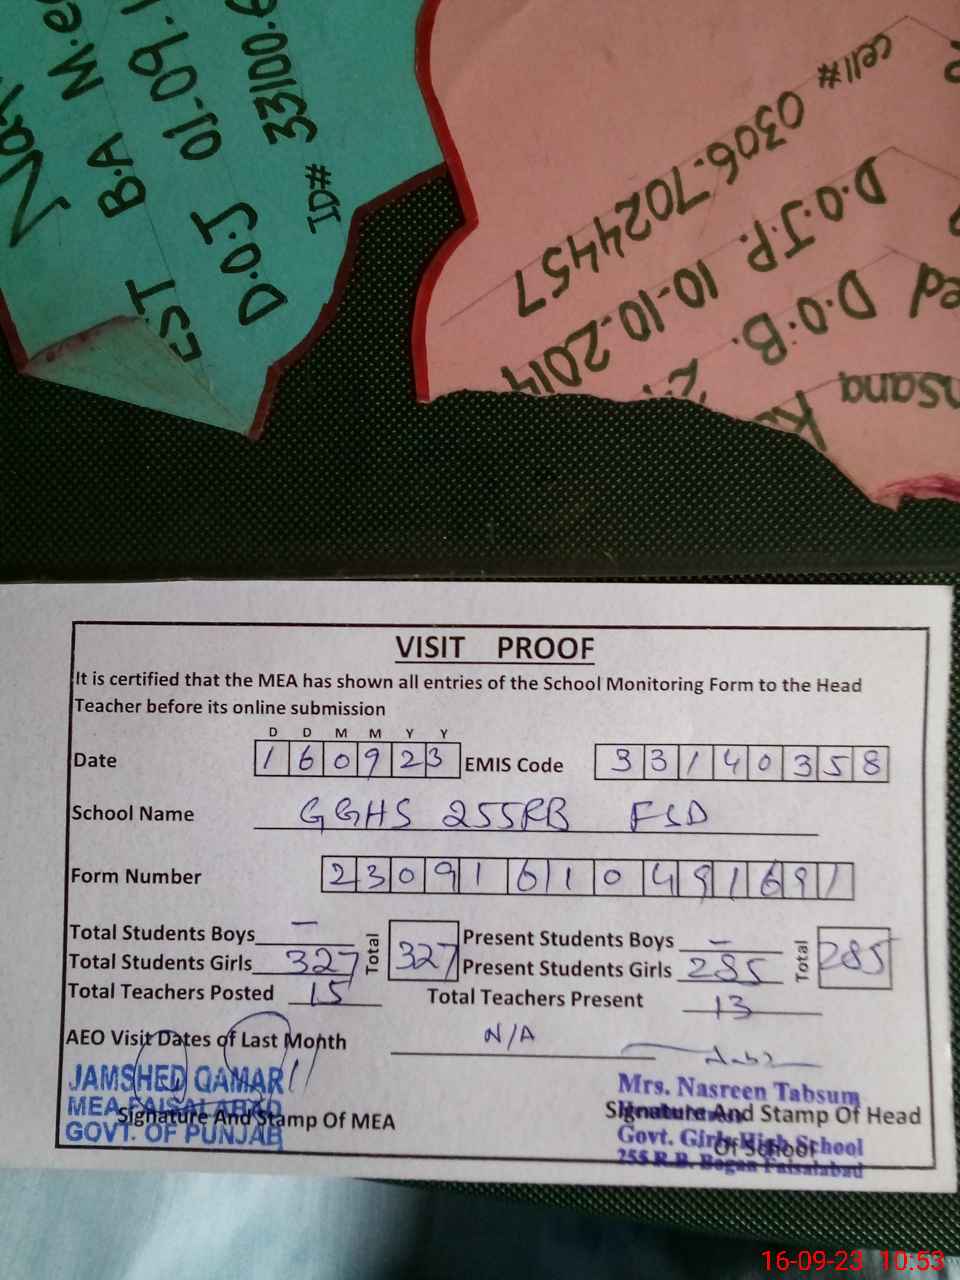 Nas
BA M.ed
EST 01.09.
D.O.J 33100.6
ID#
cell# 0306.7024457
D.O.J.P. 10-10-2014
ed D.O.B.
VISIT PROOF
It is certified that the MEA has shown all entries of the School Monitoring Form to the Head
Teacher before its online submission
D D M M Y Y
Date 1 6 0 9 2 3 EMIS Code 3 3 1 4 0 3 5 8
School Name GGHS 255RB FSD
Form Number 2 3 0 9 1 6 1 0 4 9 1 6 9 1
Total Students Boys — Total 327 Present Students Boys — Total 285
Total Students Girls 327 Present Students Girls 285
Total Teachers Posted 15 Total Teachers Present 13
AEO Visit Dates of Last Month N/A
JAMSHED QAMAR
MEA FAISALABAD
GOVT. OF PUNJAB
Signature And Stamp Of MEA
Mrs. Nasreen Tabsum
Signature And Stamp Of Head
Of School
Govt. Girls High School
255 R.B. Bogan Faisalabad
16-09-23 10:53